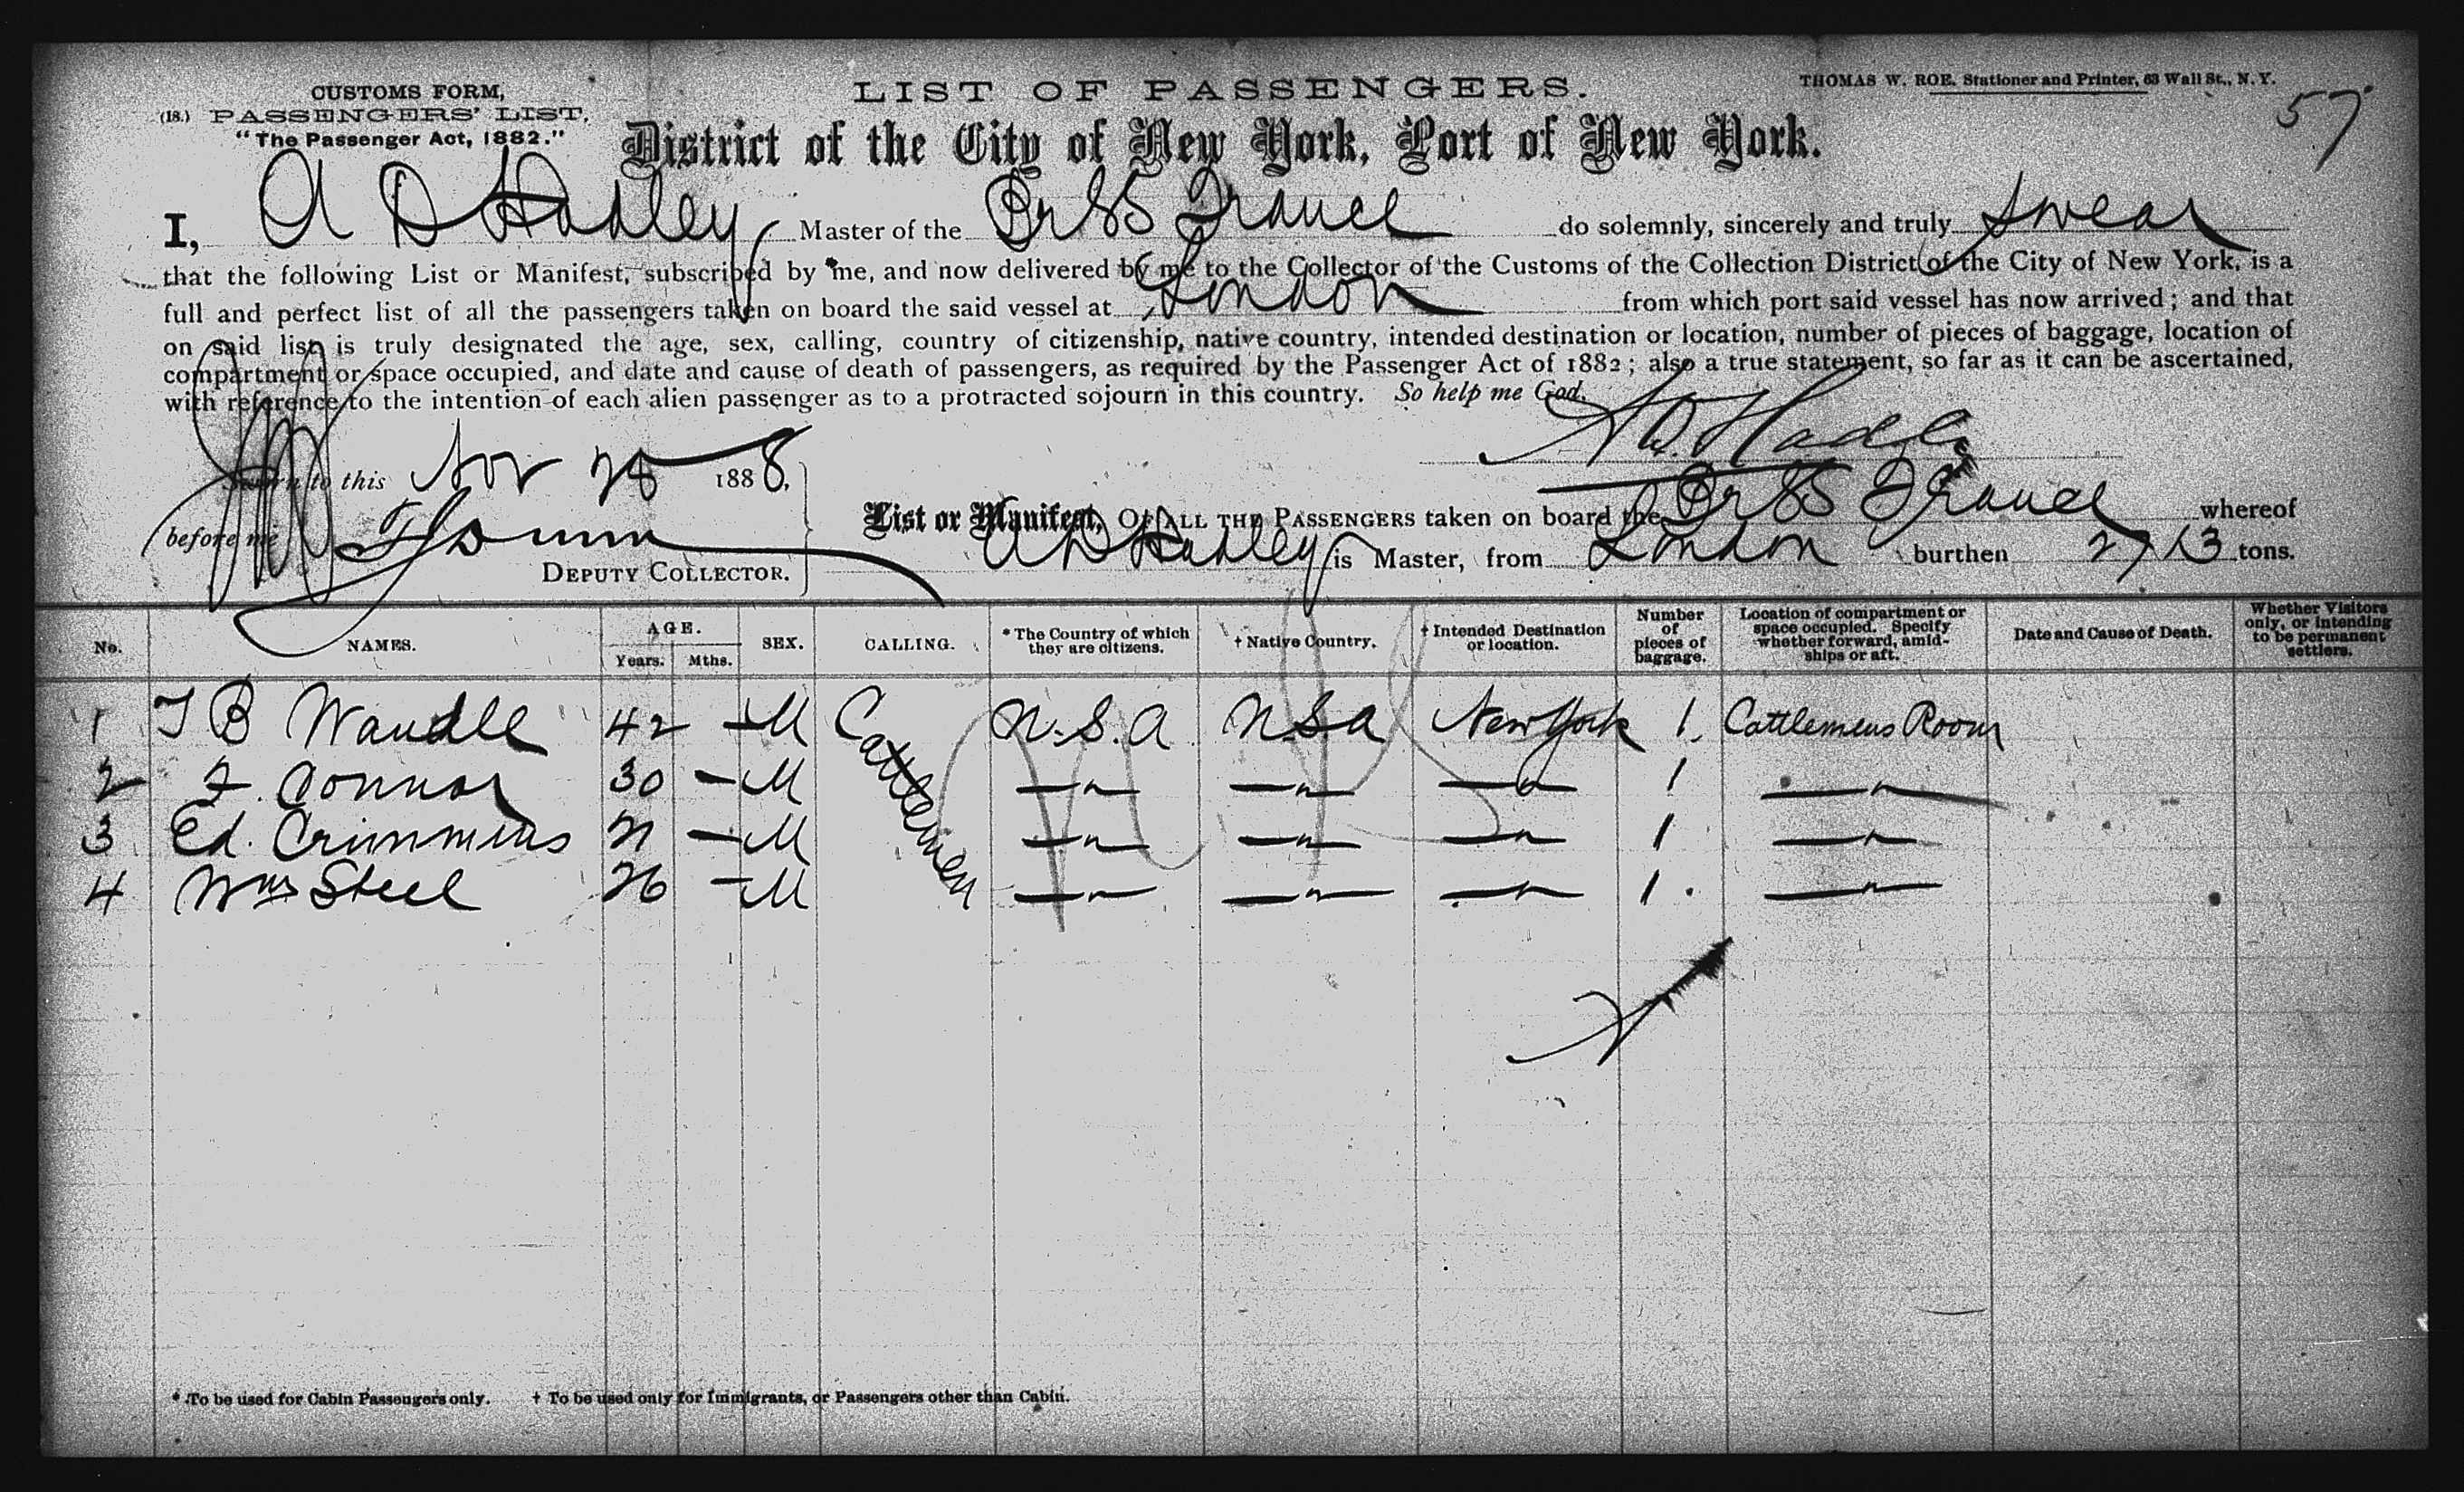 CUSTOMS FORM,
(18.) PASSENGERS' LIST,
"The Passenger Act, 1882."
LIST OF PASSENGERS.
THOMAS W. ROE, Stationer and Printer, 63 Wall St., N. Y.
57
District of the City of New York, Port of New York.
I, A D Hadley Master of the Br SS France do solemnly, sincerely and truly swear
that the following List or Manifest, subscribed by me, and now delivered by me to the Collector of the Customs of the Collection District of the City of New York, is a
full and perfect list of all the passengers taken on board the said vessel at London from which port said vessel has now arrived; and that
on said list is truly designated the age, sex, calling, country of citizenship, native country, intended destination or location, number of pieces of baggage, location of
compartment or space occupied, and date and cause of death of passengers, as required by the Passenger Act of 1882; also a true statement, so far as it can be ascertained,
with reference to the intention of each alien passenger as to a protracted sojourn in this country. So help me God.
A D. Hadley
Sworn to this Nov 28 1888,
before me
DEPUTY COLLECTOR.
List or Manifest, OF ALL THE PASSENGERS taken on board the Br SS France whereof
A D Hadley is Master, from London burthen tons.
No. NAMES. AGE. Years. Mths. SEX. CALLING. * The Country of which they are citizens. † Native Country. † Intended Destination or location. Number of pieces of baggage. Location of compartment or space occupied. Specify whether forward, amidships or aft. Date and Cause of Death. Whether Visitors only, or intending to be permanent settlers.
1 T B Wandle 42 — M Cattlemen U.S.A U.S.A New York 1. Cattlemens Room
2 F. Connor 30 — M —"— —"— —"— 1 —"—
3 Ed. Crimmins 21 — M —"— —"— —"— 1 —"—
4 Wm Steel 26 — M —"— —"— —"— 1. —"—
* To be used for Cabin Passengers only. † To be used only for Immigrants, or Passengers other than Cabin.